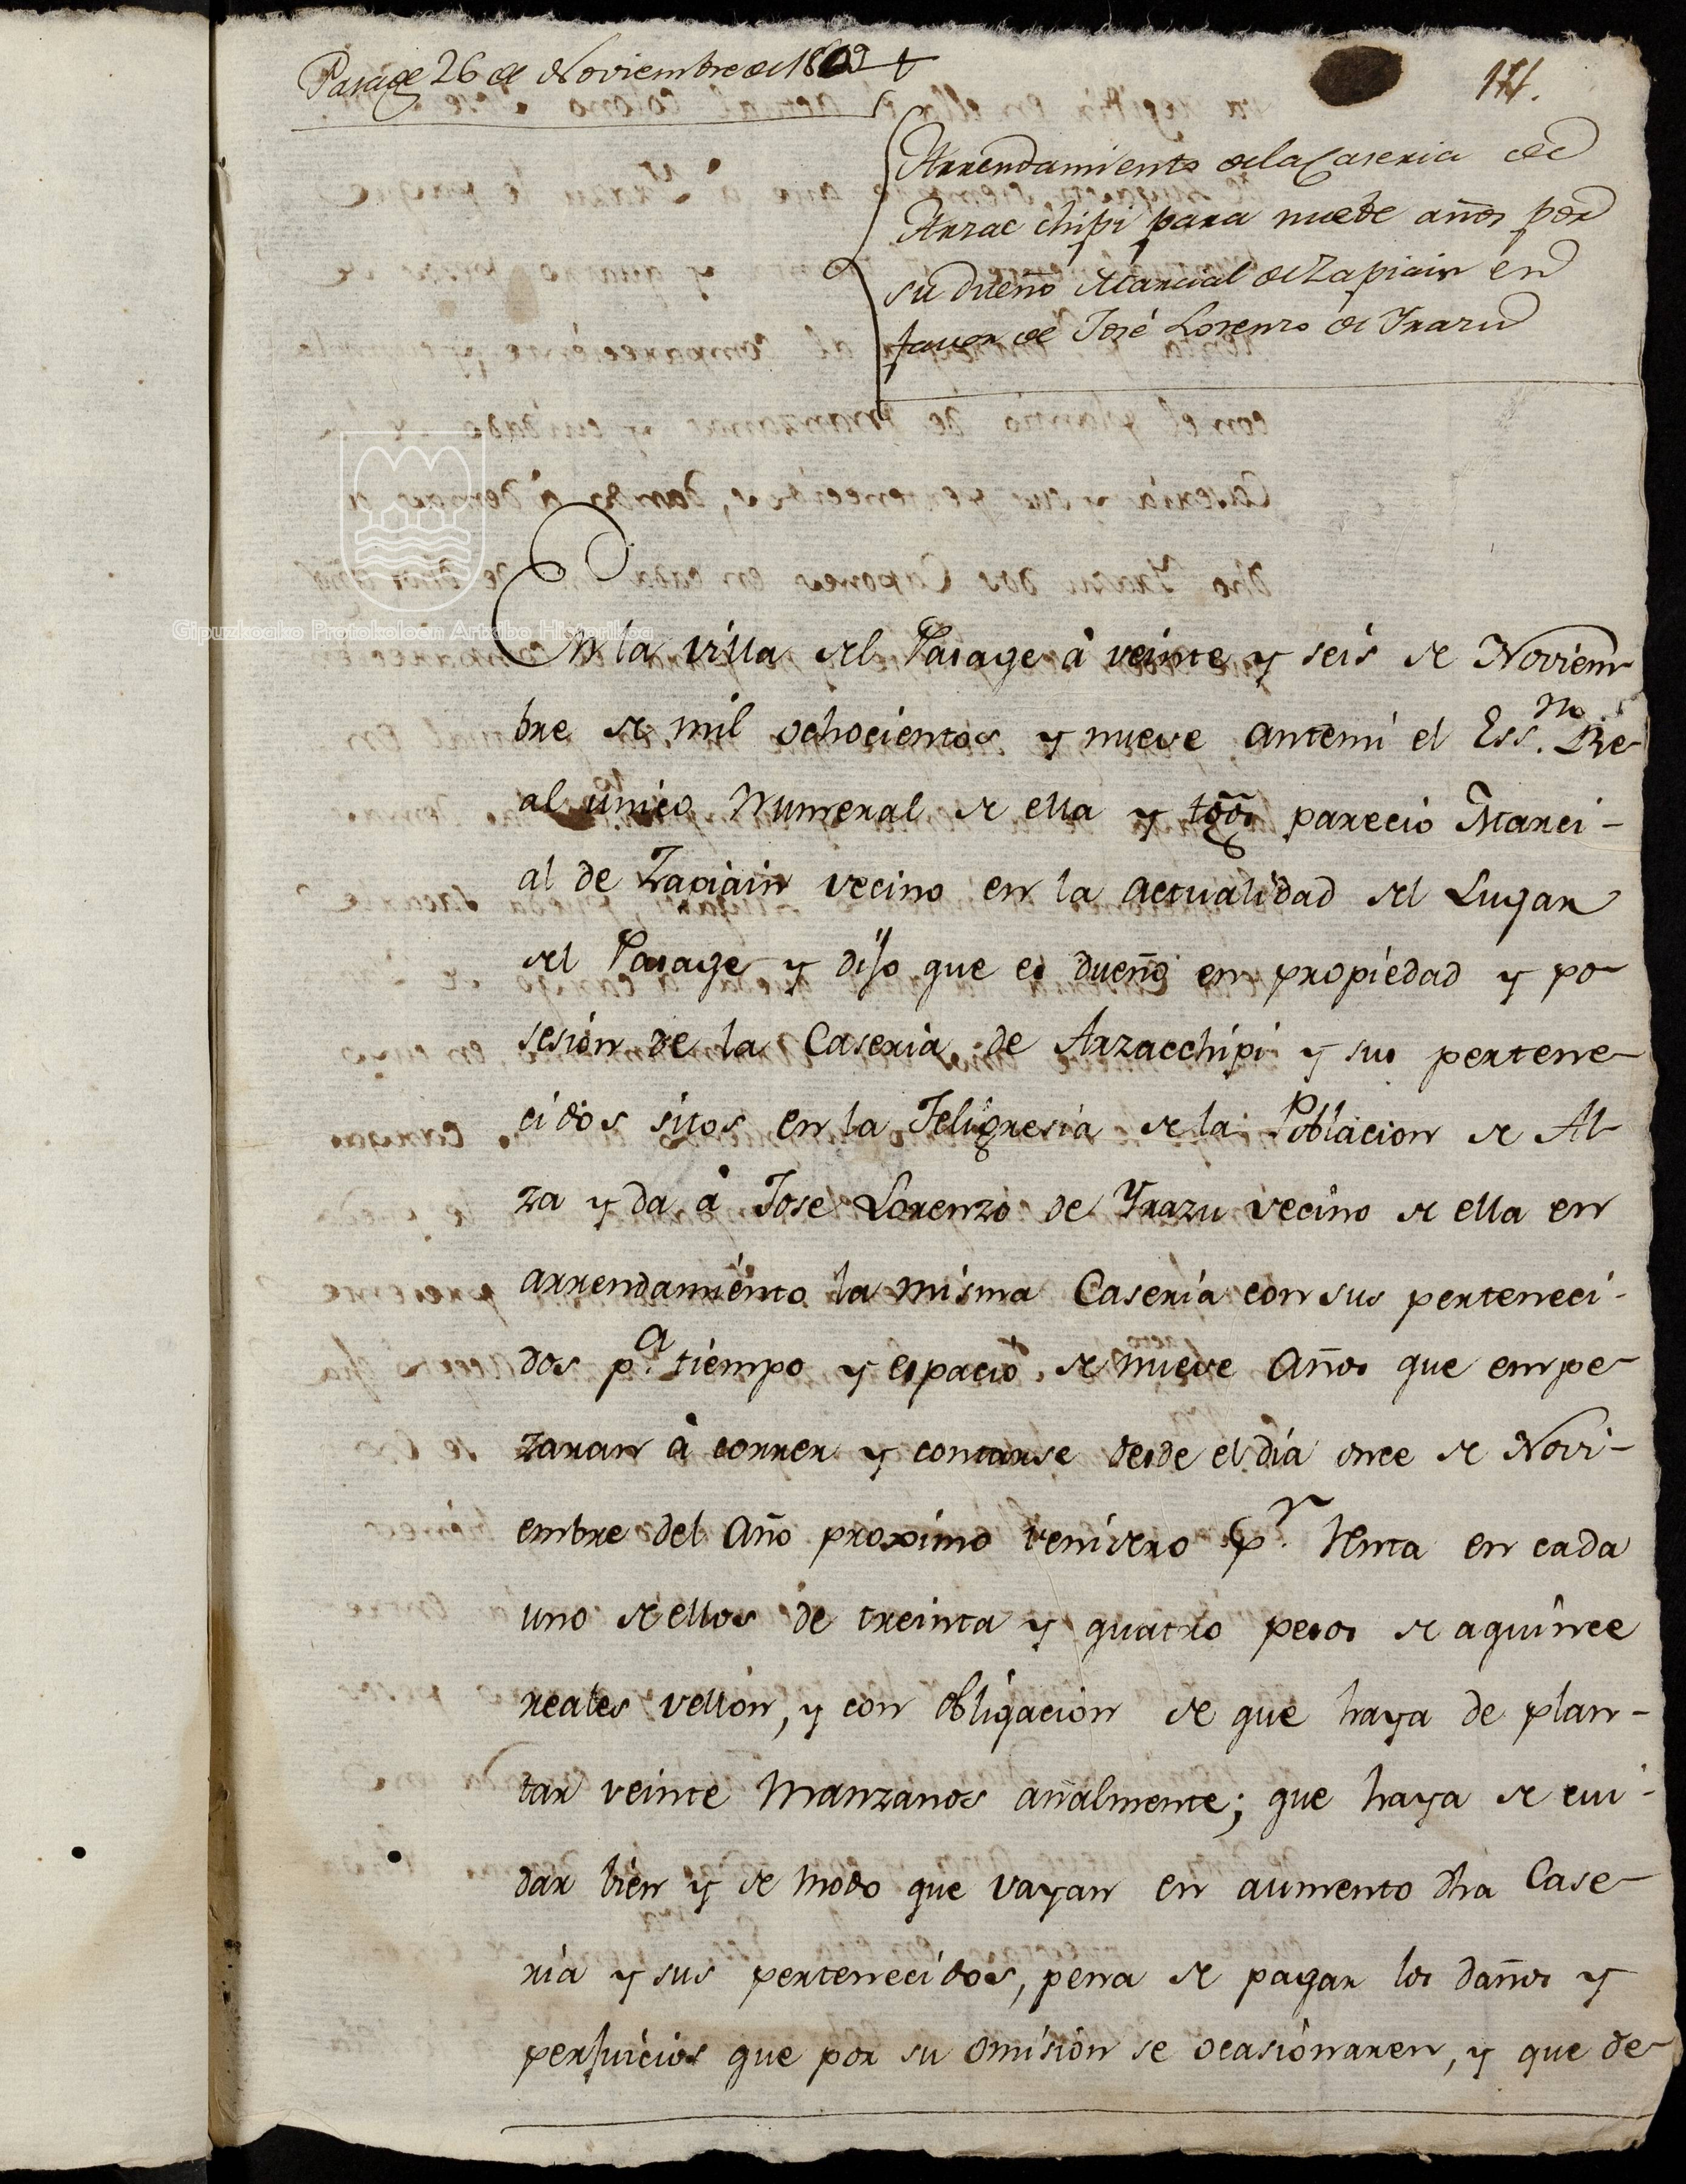 Pasage 26 de Noviembre de 1809
171.
Arrendamiento de la Caseria de
Arzac chipi para nuebe años por
su dueño Marcial de Zapiain en
favor de José Lorenzo de Yrazu
Gipuzkoako Protokoloen Artxibo Historikoa
En la villa del Pasage à veinte y seis de Noviem-
bre de mil ochocientos y nueve antemi el Ess.no Re-
al unico Numeral de ella y tgōs parecio Marci-
al de Zapiain vecino en la actualidad del Lugar
del Pasage y dijo que es dueño en propiedad y po-
sesion de la Caseria de Arzacchipi y sus pertene-
cidos sitos en la Feligresia de la Poblacion de Al-
za y da à Jose Lorenzo de Yrazu vecino de ella en
arrendamiento la misma Caseria con sus perteneci-
dos p.a tiempo y espacio de nueve Años que empe-
zaran à correr y contarse desde el dia once de Novi-
embre del Año proximo venidero p.r renta en cada
uno de ellos de treinta y quatro pesos de aquince
reales vellon, y con obligacion de que haya de plan-
tar veinte Manzanos añalmente; que haya de cui-
dar bien y de modo que vayan en aumento dha Case-
ria y sus pertenecidos, pena de pagar los daños y
perjuicios que por su omision se ocasionaren, y que de-